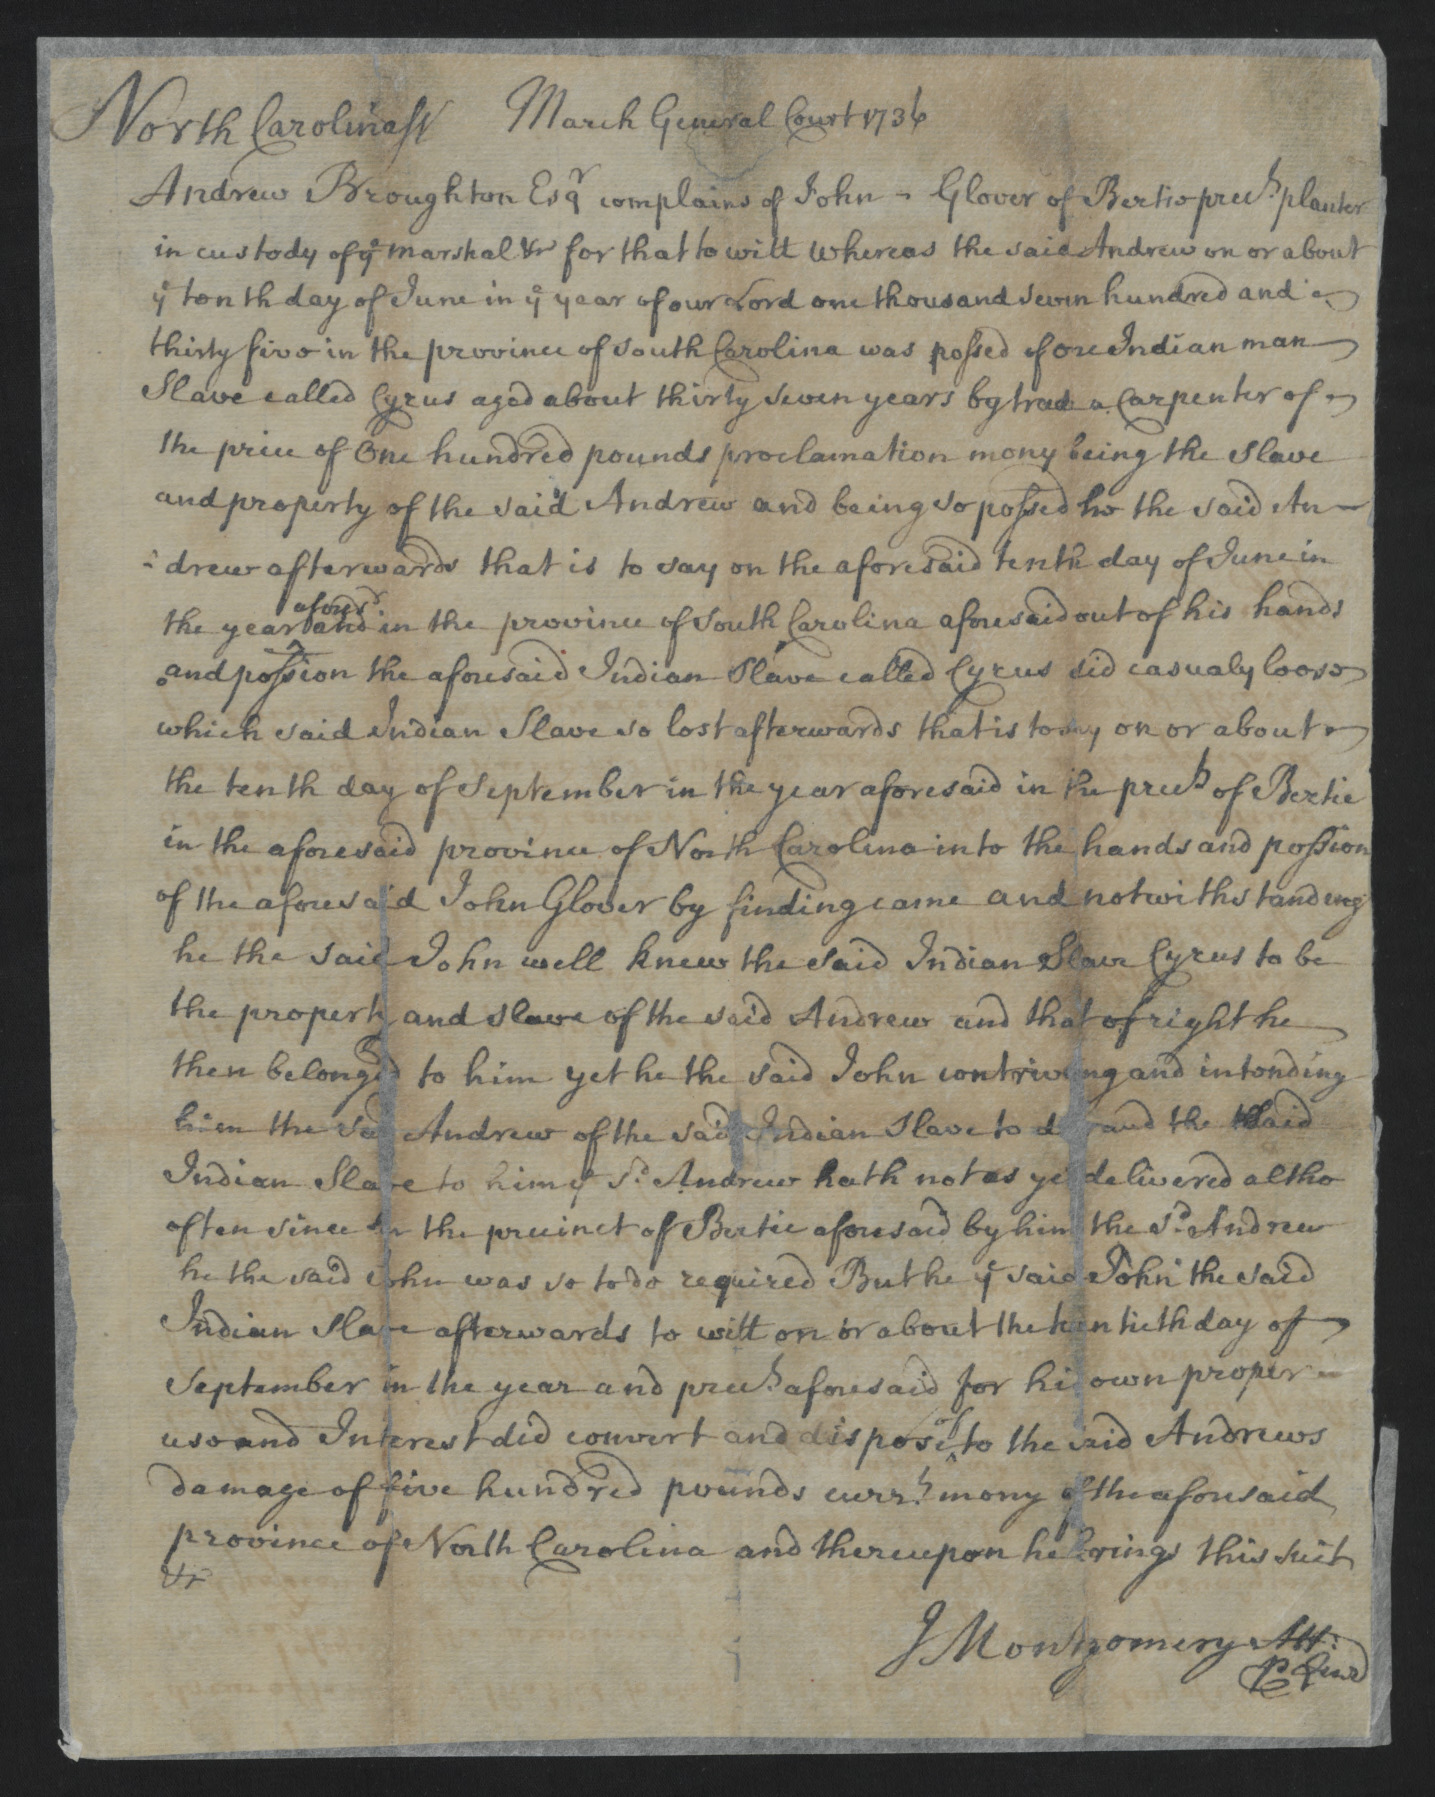 North Carolina ss March General Court 1736
Andrew Broughton Esqr complains of John Glover of Bertie precth planter
in custody of ye marshal &c for that to witt whereas the said Andrew on or about
ye tenth day of June in ye year of our Lord one thousand seven hundred and
thirty five in the province of South Carolina was possed of one Indian man
Slave called Cyrus aged about thirty seven years by trade a Carpenter of
the price of One hundred pounds proclamation mony being the Slave
and property of the said Andrew and being so possed he the said An
drew afterwards that is to say on the aforesaid tenth day of June in
the year aforesd and in the province of South Carolina aforesaid out of his hands
and possion the aforesaid Indian Slave called Cyrus did casualy loose
which said Indian Slave so lost afterwards that is to say on or about
the tenth day of September in the year aforesaid in the precth of Bertie
in the aforesaid province of North Carolina into the hands and possion
of the aforesaid John Glover by finding came and notwithstanding
he the said John well knew the said Indian Slave Cyrus to be
the property and slave of the said Andrew and that of right he
then belonged to him yet he the said John contriving and intending
him the said Andrew of the said Indian Slave to and the said
Indian Slave to him ye sd Andrew hath not as yet delivered altho
often since in the precinct of Bertie aforesaid by him the sd Andrew
he the said John was so to do required But he ye said John the said
Indian Slave afterwards to witt on or about the day of
September in the year and precth aforesaid for his own proper
use and Interest did convert and dispose of to the said Andrews
damage of five hundred pounds currt mony of the aforesaid
province of North Carolina and thereupon he brings this suit
&c
J Montgomery Att:
P Quer